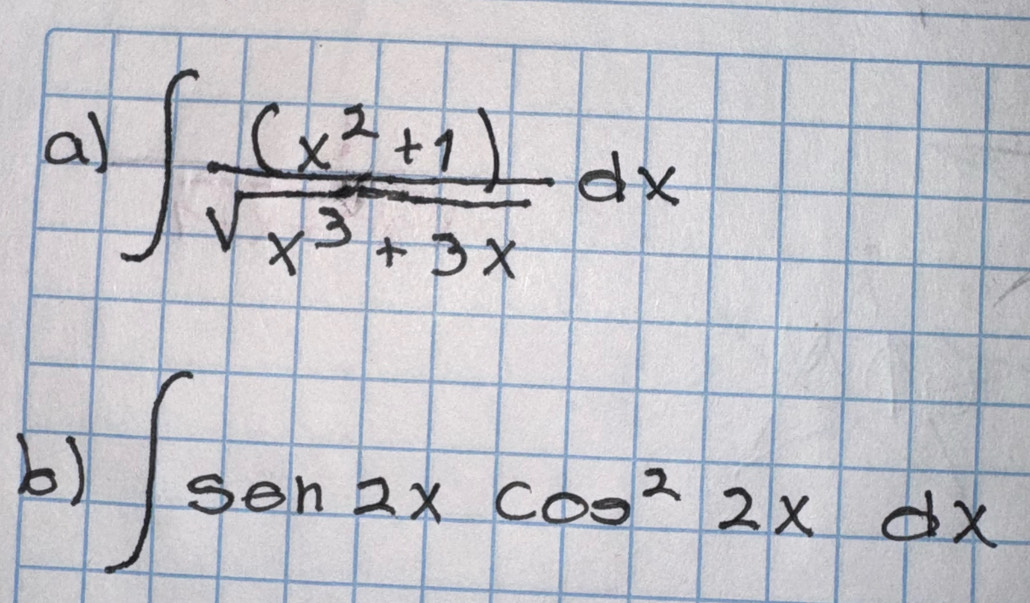 a) ∫ (x² + 1) / √(x³ + 3x) dx
b) ∫ sen 2x cos² 2x dx